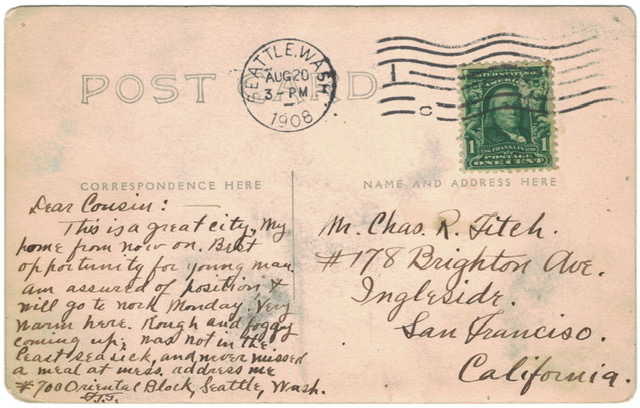 POST CARD
SEATTLE, WASH.
AUG 20
3 - PM
1908
1
C
UNITED STATES OF AMERICA
FRANKLIN
1 1
POSTAGE
ONE CENT
CORRESPONDENCE HERE
Dear Cousin: —
This is a great city, my
home from now on. Best
opportunity for young man.
am assured of position &
will go to work Monday. Very
warm here. Rough and foggy
coming up; was not in the
least seasick, and never missed
a meal at mess. address me
#700 Oriental Block, Seattle, Wash.
NAME AND ADDRESS HERE
Mr. Chas. R. Fitch.
#178 Brighton Ave.
Ingleside.
San Francisco.
California.